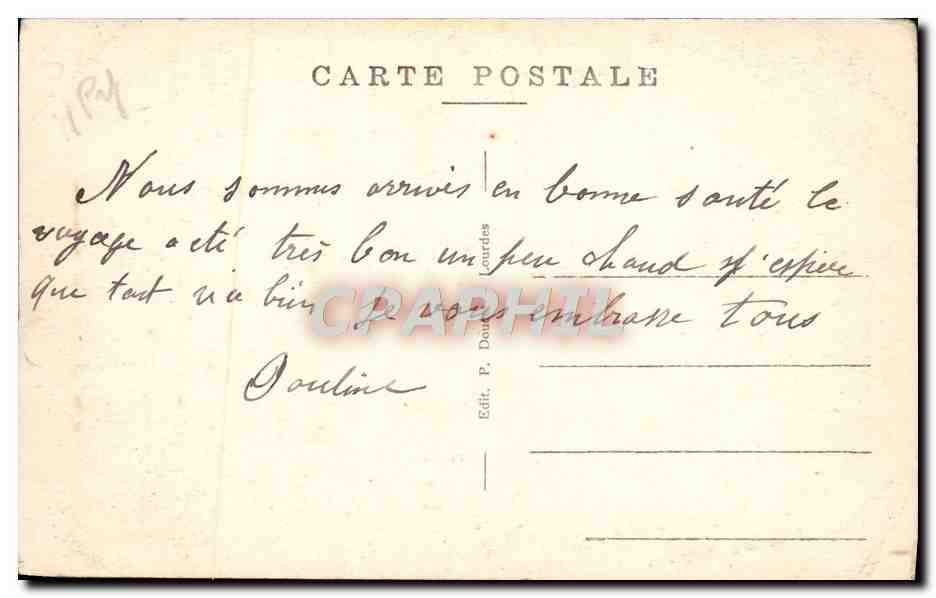 CARTE POSTALE
Nous sommes arrivés en bonne santé le
voyage a été très bon un peu chaud j'espère
que tout va bien Je vous embrasse tous
Pauline
Edit. P. Lourdes
CPAPHIL